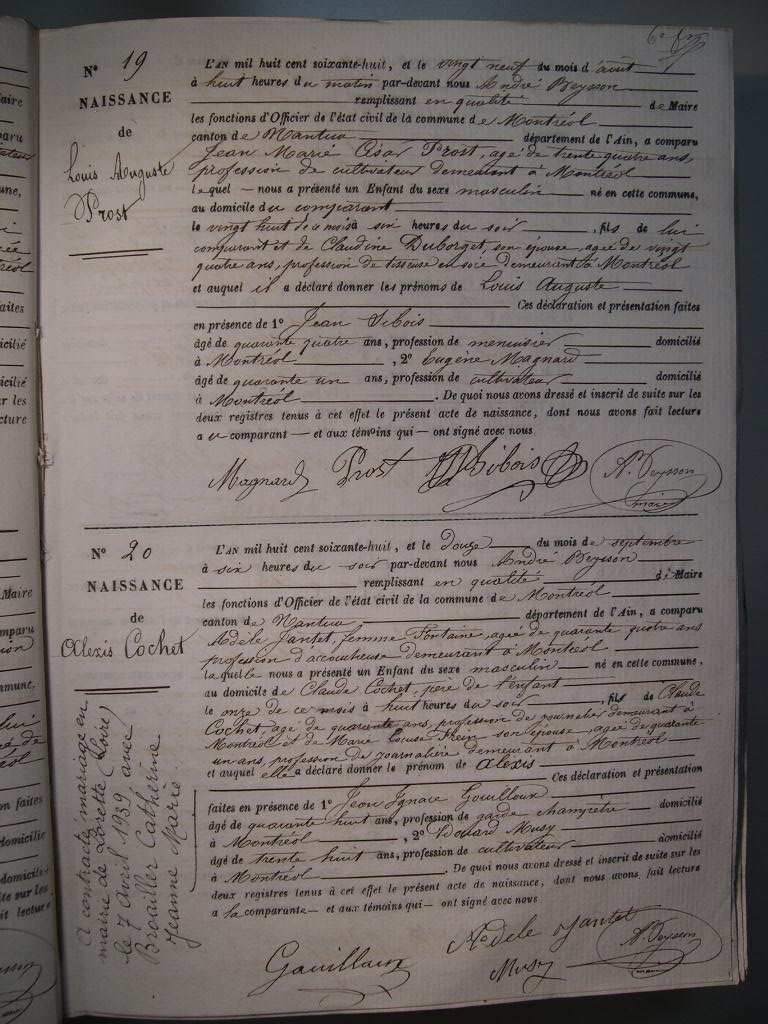 N° 19
NAISSANCE
de
Louis Auguste
Prost
L'AN mil huit cent soixante-huit, et le vingt neuf du mois d'août
à huit heures du matin par-devant nous André Beysson
remplissant en qualité de Maire
les fonctions d'Officier de l'état civil de la commune de Montréal
canton de Nantua département de l'Ain, a comparu
Jean Marie César Prost, agé de trente quatre ans,
profession de cultivateur demeurant à Montréal
lequel nous a présenté un Enfant du sexe masculin né en cette commune,
au domicile du comparant
le vingt huit de ce mois à six heures du soir, fils de lui
comparant et de Claudine Duborget, son épouse, agée de vingt
quatre ans, profession de tisseuse en soie demeurant à Montréal
et auquel il a déclaré donner les prénoms de Louis Auguste
Ces déclaration et présentation faites
en présence de 1° Jean Sibois
âgé de quarante quatre ans, profession de menuisier domicilié
à Montréal, 2° Eugène Magnard
âgé de quarante un ans, profession de cultivateur domicilié
à Montréal. De quoi nous avons dressé et inscrit de suite sur les
deux registres tenus à cet effet le présent acte de naissance, dont nous avons fait lecture
a u comparant et aux témoins qui ont signé avec nous
Magnard Prost Sibois A. Beysson
maire
N° 20
NAISSANCE
de
Alexis Cochet
L'AN mil huit cent soixante-huit, et le douze du mois de septembre
à six heures du soir par-devant nous André Beysson
remplissant en qualité de Maire
les fonctions d'Officier de l'état civil de la commune de Montréal
canton de Nantua département de l'Ain, a comparu
Adele Jantet, femme Fontaine, agée de quarante quatre ans
profession d'accoucheuse demeurant à Montréal
laquelle nous a présenté un Enfant du sexe masculin né en cette commune,
au domicile de Claude Cochet, père de l'enfant
le onze de ce mois à huit heures du soir, fils de Claude
Cochet, agé de quarante ans, profession de journalier demeurant à
Montréal et de Marie Louise son épouse, agée de quarante
un ans, profession de journalière demeurant à Montréal
et auquel elle a déclaré donner le prénom de Alexis
Ces déclaration et présentation
faites en présence de 1° Jean Ignace Gouilloux
âgé de quarante huit ans, profession de garde champêtre domicilié
à Montréal, 2° Edouard Musy
âgé de trente huit ans, profession de cultivateur domicilié
à Montréal. De quoi nous avons dressé et inscrit de suite sur les
deux registres tenus à cet effet le présent acte de naissance, dont nous avons fait lecture
a la comparante et aux témoins qui ont signé avec nous
Gouilloux Adele Jantet
Musy A. Beysson
maire
A contracté mariage en
mairie de Lorette (Loire)
le 7 avril 1939 avec
Broailler Catherine
Jeanne Marie